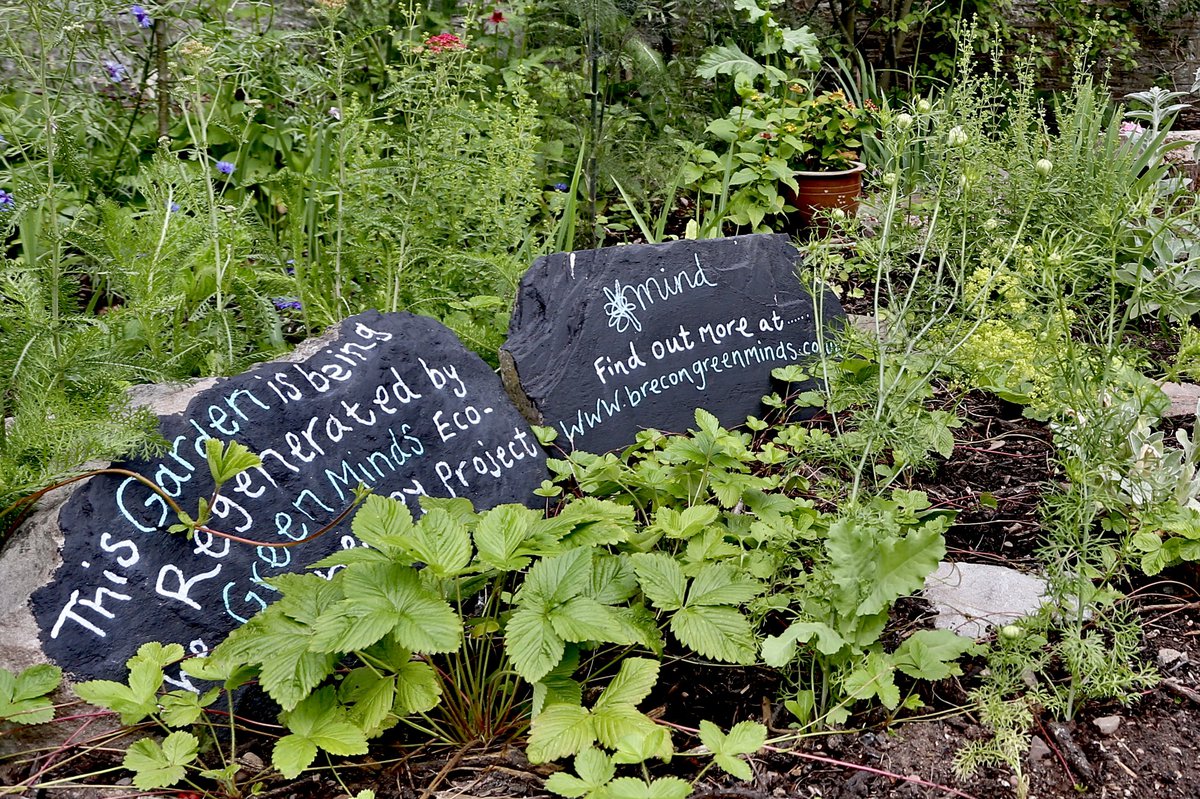 This Garden is being
Regenerated by
Green Minds Eco-
Project
mind
Find out More at ......
www.brecongreenminds.co.uk